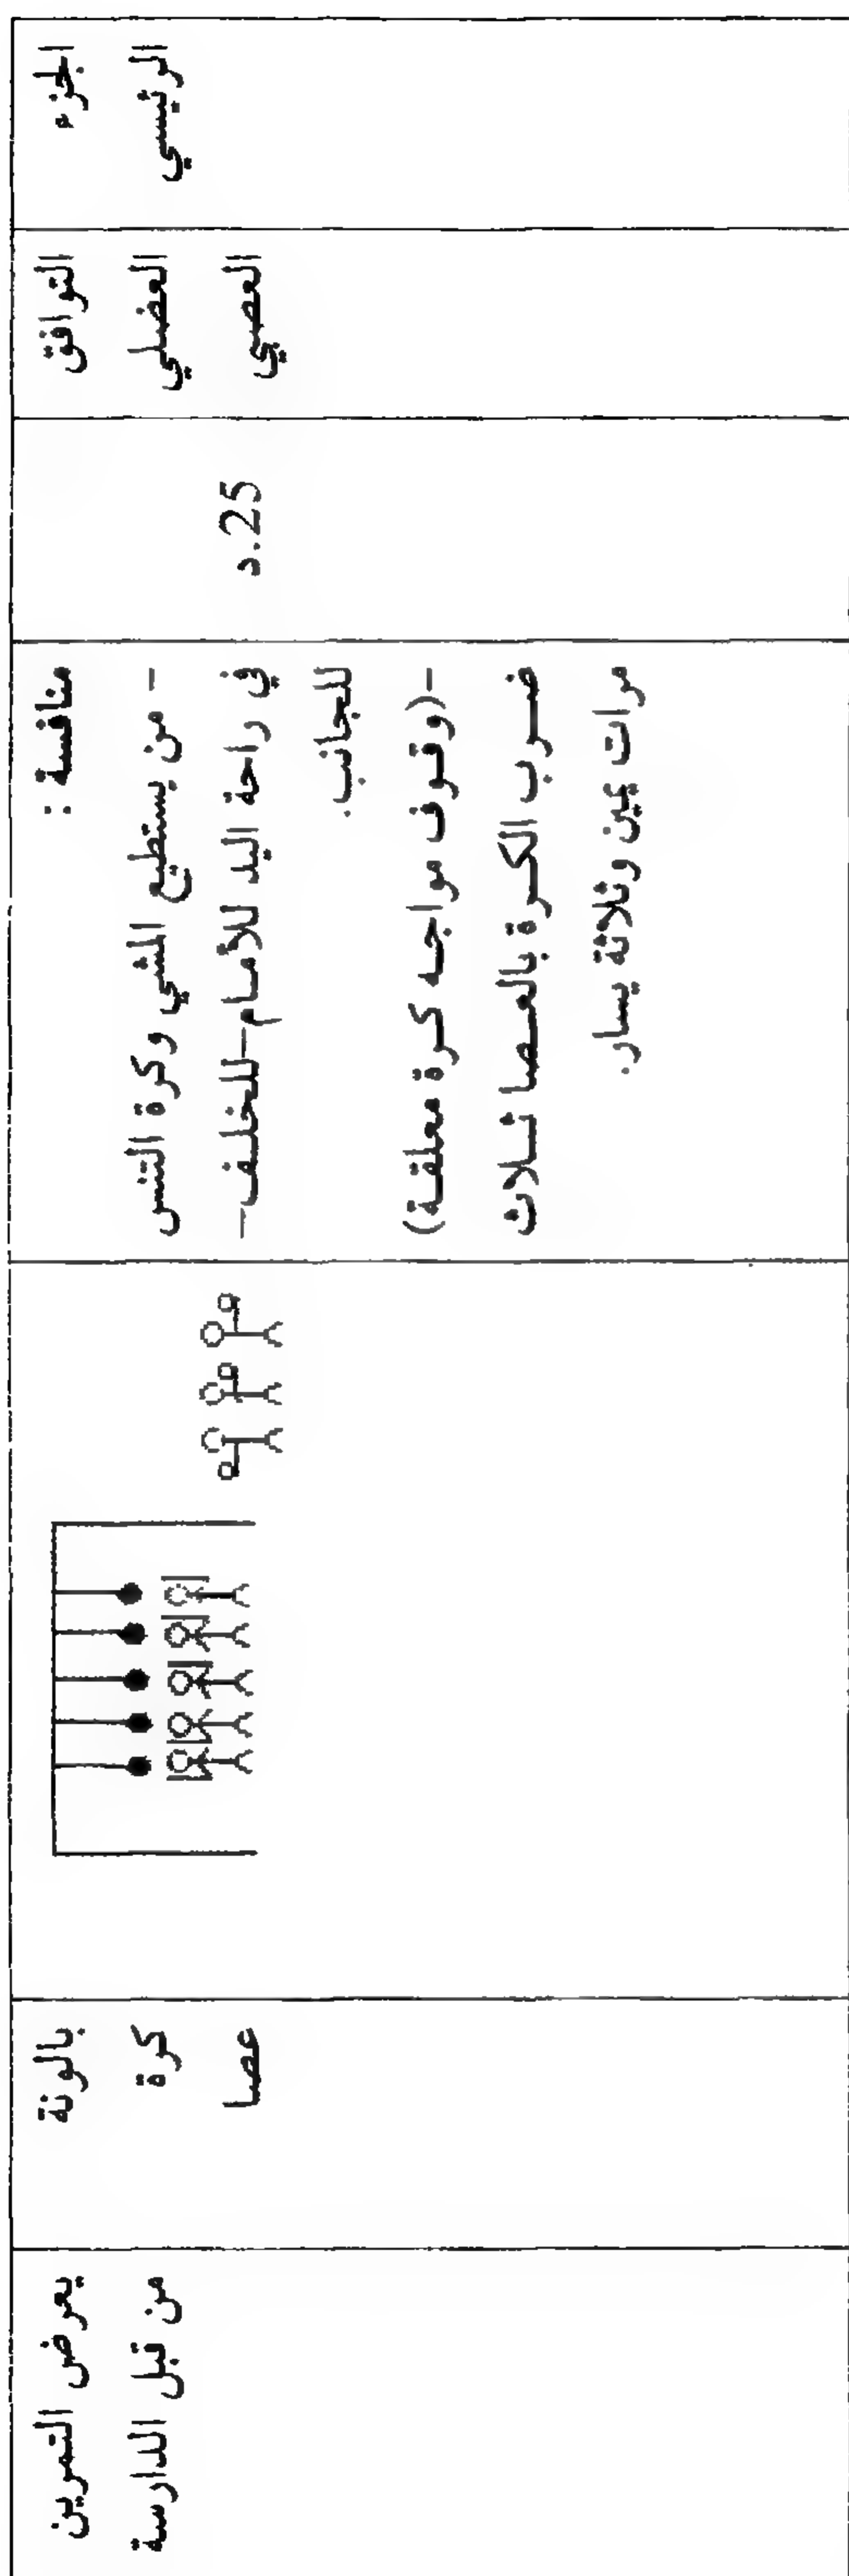 الجزء
الرئيسي
التوافق
العضلي
العصبي
25.د
منافسة :
- من يستطيع المشي وكرة التنس
في راحة اليد للأمام-للخلف-
للجانب.
-(وقوف مواجه كرة معلقة)
ضرب الكرة بالعصا ثلاث
مرات يمين وثلاثة يسار.
بالونة
كرة
عصا
يعرض التمرين
من قبل الدارسة